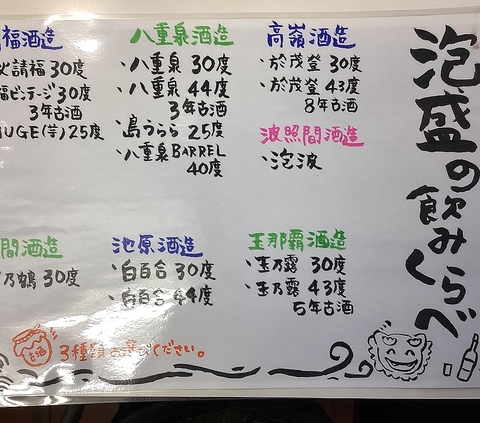 泡盛の飲みくらべ
高嶺酒造
・於茂登 30度
・於茂登 43度
8年古酒
波照間酒造
・泡波
八重泉酒造
・八重泉 30度
・八重泉 44度
3年古酒
・島うらら 25度
・八重泉BARREL
40度
福酒造
請福 30度
福ビンテージ 30度
3年古酒
UGE(芋)25度
玉那覇酒造
・玉乃露 30度
・玉乃露 43度
5年古酒
池原酒造
・白百合 30度
・白百合 44度
間酒造
乃鶴 30度
古酒
3種類お選びください。